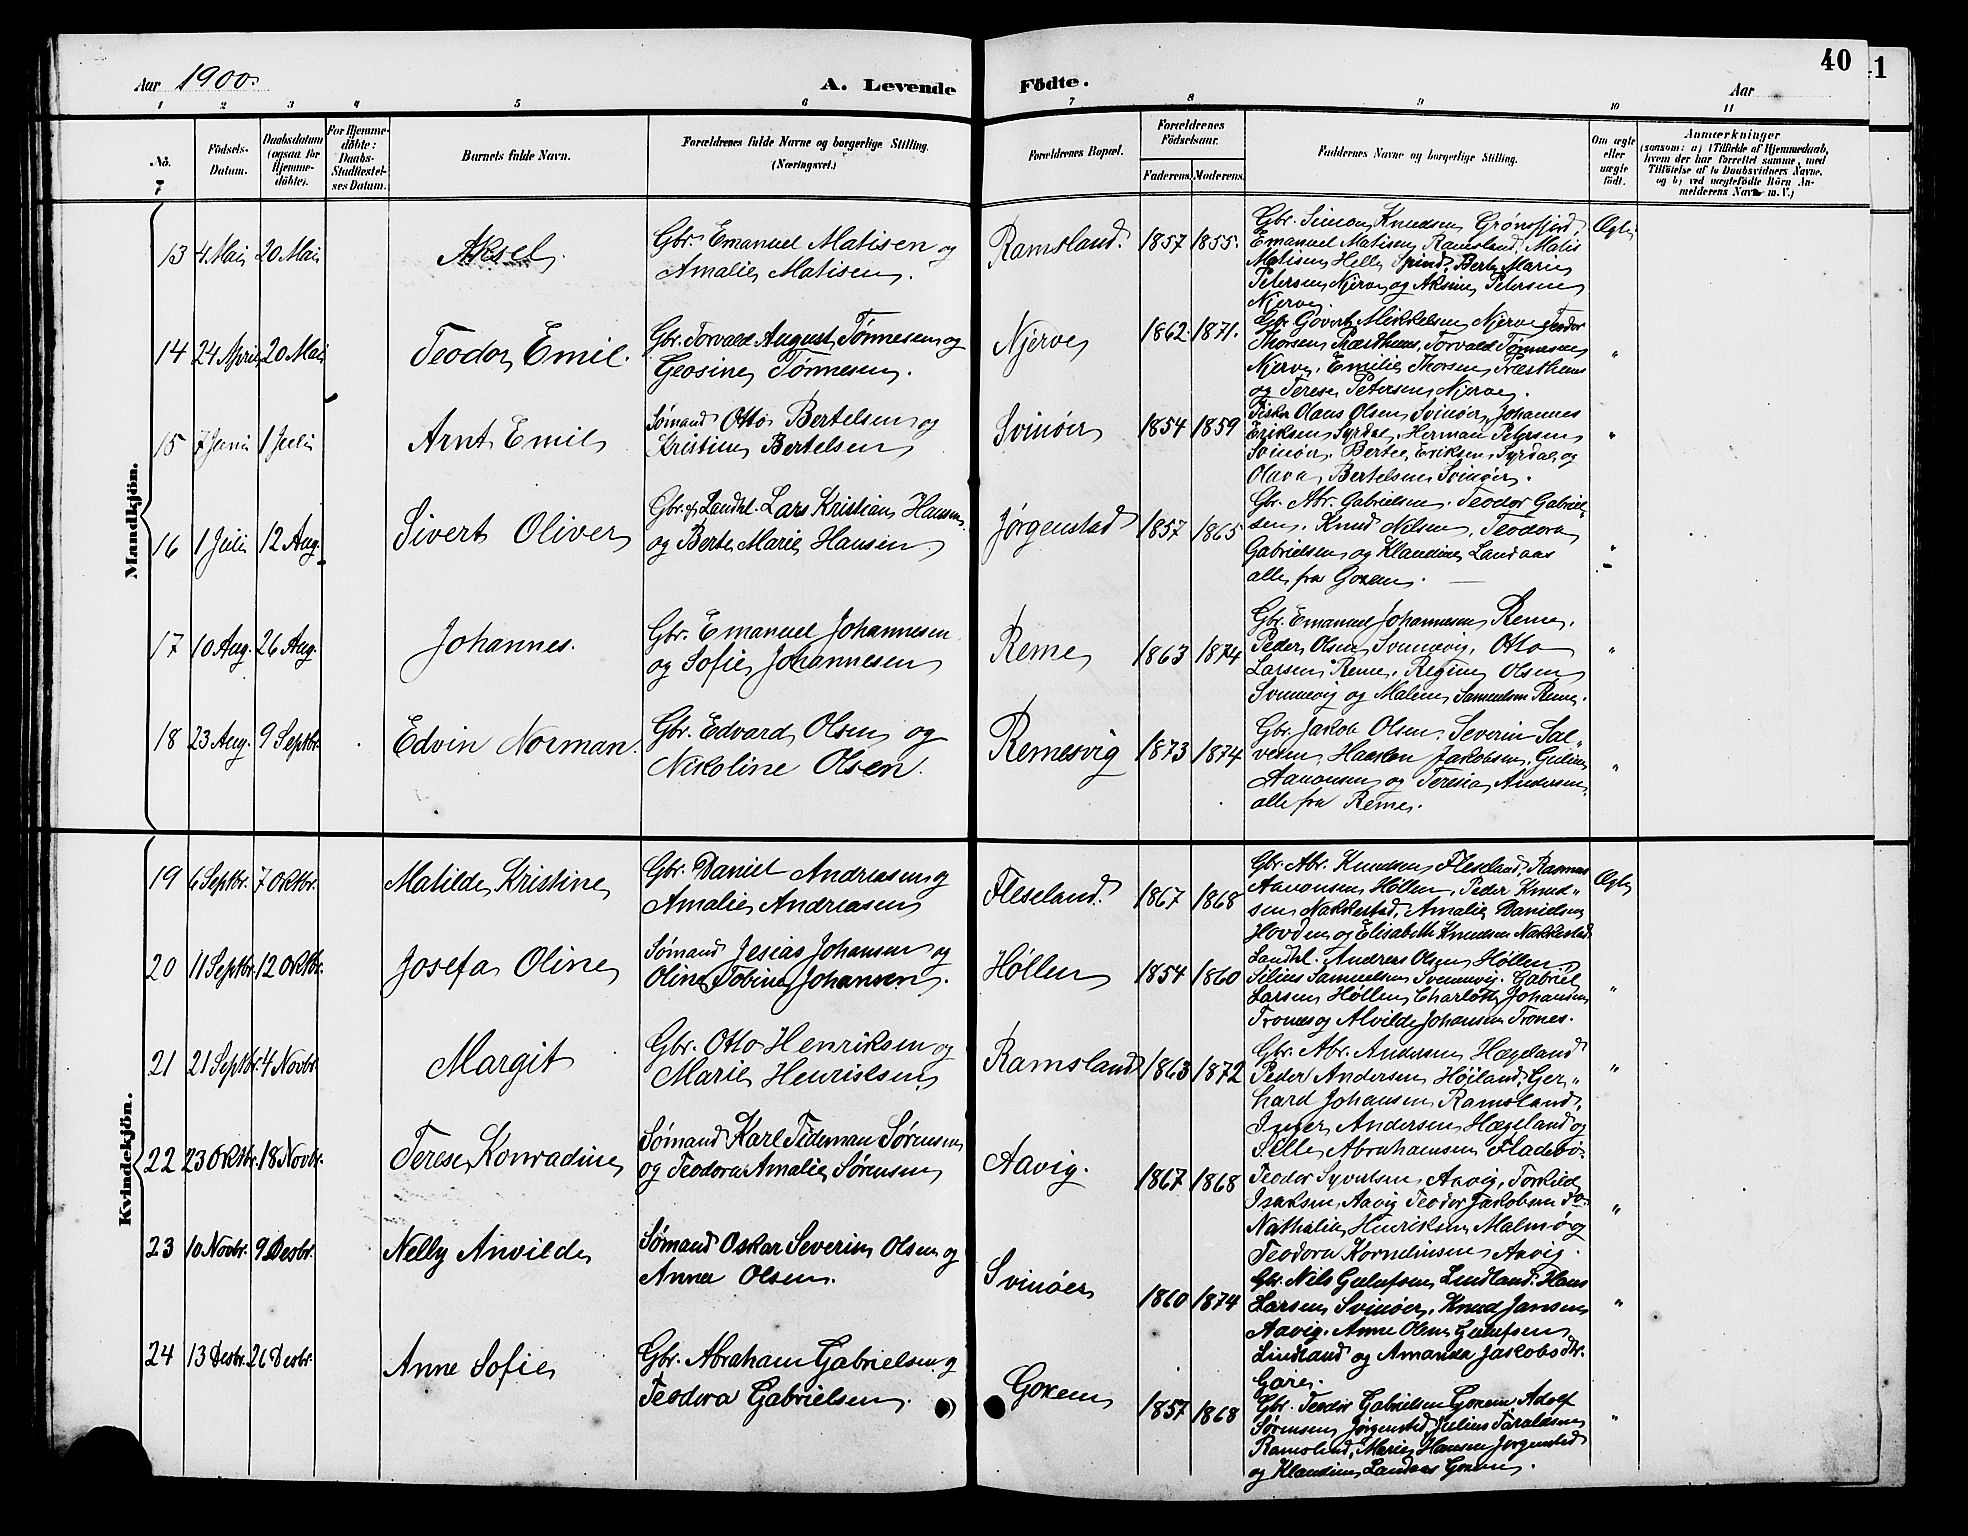 40
1
Aar 1900.
A. Levende
Födte.
Aar
1 2 3 4 5 6 7 8 9 10 11
No.
Födsels-Datum.
Daabsdatum (ogsaa for Hjemme-döbte).
For Hjemme-döbte: Daabs-Stadfæstel-ses Datum.
Barnets fulde Navn.
Forældrenes fulde Navne og borgerlige Stilling.
(Næringsvei.)
Forældrenes Bopæl.
Forældrenes Födselsaar.
Faderens. Moderens.
Faddernes Navne og borgerlige Stilling.
Om ægte eller uægte födt.
Anmærkninger
(saasom: a) i Tilfælde af Hjemmedaab, hvem der har forrettet samme, med Tilföielse af to Daabsvidners Navne, og b) ved uægtefödte Börn An-melderens Navn m. V.)
Mandkjön.
13 4 Mai 20 Mai Aksel.
Gbr. Emanuel Matisen og
Amalie Matisen.
Ramsland. 1857 1855.
Gbr. Simon Knudsen Grønsfjord,
Emanuel Matisen Ramsland, Matis
Matisen Helle Spind, Berte Marie
Petersen Njerve og Aksine Petersen
Njerve.
Ægte
14 24 April 20 Mai Teodor Emil.
Gbr. Torvald August Tønnesen og
Geosine Tønnesen.
Njerve 1862. 1871.
Gbr Govert Mikkelsen Njerve Teodor
Thorsen Præsthuus, Torvald Tønnesen
Njerve, Emilie Thorsen Præsthuus
og Terese Petersen Njerve.
"
15 7 Juni 1 Juli Arnt Emil
Sømand Otto Bertelsen og
Kristine Bertelsen
Svinøer 1854 1859
Fisker Olaus Olsen Svinøer, Johannes
Eriksen Syrdal, Herman Petersen
Svinøer, Bertee Eriksen Syrdal og
Olava Bertelsen Svinøer.
"
16 1 Juli 12 Aug. Sivert Oliver
Gbr. & Landhl. Lars Kristian Hansen
og Berte Marie Hansen.
Jørgenstad 1857 1865
Gbr. Abr. Gabrielsen, Teodor Gabriel-
sen, Knud Nilsen, Teodora
Gabrielsen og Klaudine Landaas
alle fra Goxem.
"
17 10 Aug. 26 Aug. Johannes.
Gbr. Emanuel Johannesen
og Sofie Johannesen
Reme 1863 1874
Gbr. Emanuel Johannesen Reme,
Peder Olsen Svinnevig, Otto
Larsen Reme, Regine Olsen
Svinnevig og Malene Samuelsen Reme.
"
18 23 Aug. 9 Septbr. Edvin Norman.
Gbr. Edvard Olsen og
Nikoline Olsen.
Remesvig 1873 1874
Gbr. Jakob Olsen, Severin Sal-
vesen, Haakon Jakobsen, Guline
Aanonsen og Teresia Andersen
alle fra Reme.
"
Kvindekjön.
19 6 Septbr. 7 Oktbr. Matilde Kristine
Gbr. Daniel Andreasen og
Amalie Andreasen
Fleseland. 1867 1868
Gbr. Abr. Knudsen Fleseland, Rasmus
Aanonsen Høllen, Peder Knud-
sen Nakkestad, Amalie Danielsen
Hovden og Elisabeth Knudsen Nakkestad.
Ægte
20 11 Septbr. 12 Oktbr. Josefa Oline
Sømand Jesias Johansen og
Oline Tobine Johansen.
Høllen 1854 1860
Landhl. Andreas Olsen Høllen
Silius Samuelsen Svinnevig, Gabriel
Larsen Høllen, Charlotte Johansen
Trones og Alvilde Johansen Trones.
"
21 21 Septbr. 4 Novbr. Margit
Gbr. Otto Henriksen og
Marie Henriksen
Ramsland 1863 1872
Gbr. Abr. Andersen Hægeland
Peder Andersen Høiland, Ger-
hard Johansen Ramsland,
Inger Andersen Hægeland og
Sille Abrahamsen Fladebö.
"
22 23 Oktbr. 18 Novbr. Terese Konradine
Sømand Karl Tideman Sørensen
og Teodora Amalie Sørensen
Aavig. 1867 1868
Teodor Syvertsen Aavig, Torkild
Isaksen Aavig Teodor Jakobsen do
Nathalie Henriksen Malmø og
Teodora Korneliussen Aavig.
"
23 10 Novbr. 9 Desbr. Nelly Anvilde
Sømand Oskar Severin Olsen og
Anna Olsen.
Svinøer 1860 1874
Gbr. Nils Gulufsen Lindland, Hans
Larsen Svinøer, Knud Jansen
Aavig, Anne Olene Gulufsen
Lindland og Amanda Jakobsdtr.
Gare.
"
24 13 Desbr. 26 Desbr. Anne Sofie
Gbr. Abraham Gabrielsen og
Teodora Gabrielsen.
Goxem 1857 1868
Gbr. Teodor Gabrielsen Goxem Adolf
Sørensen Jørgenstad, Julius Taraldsen
Ramsland, Marie Hansen Jørgenstad
og Klaudine Landaas Goxem.
"